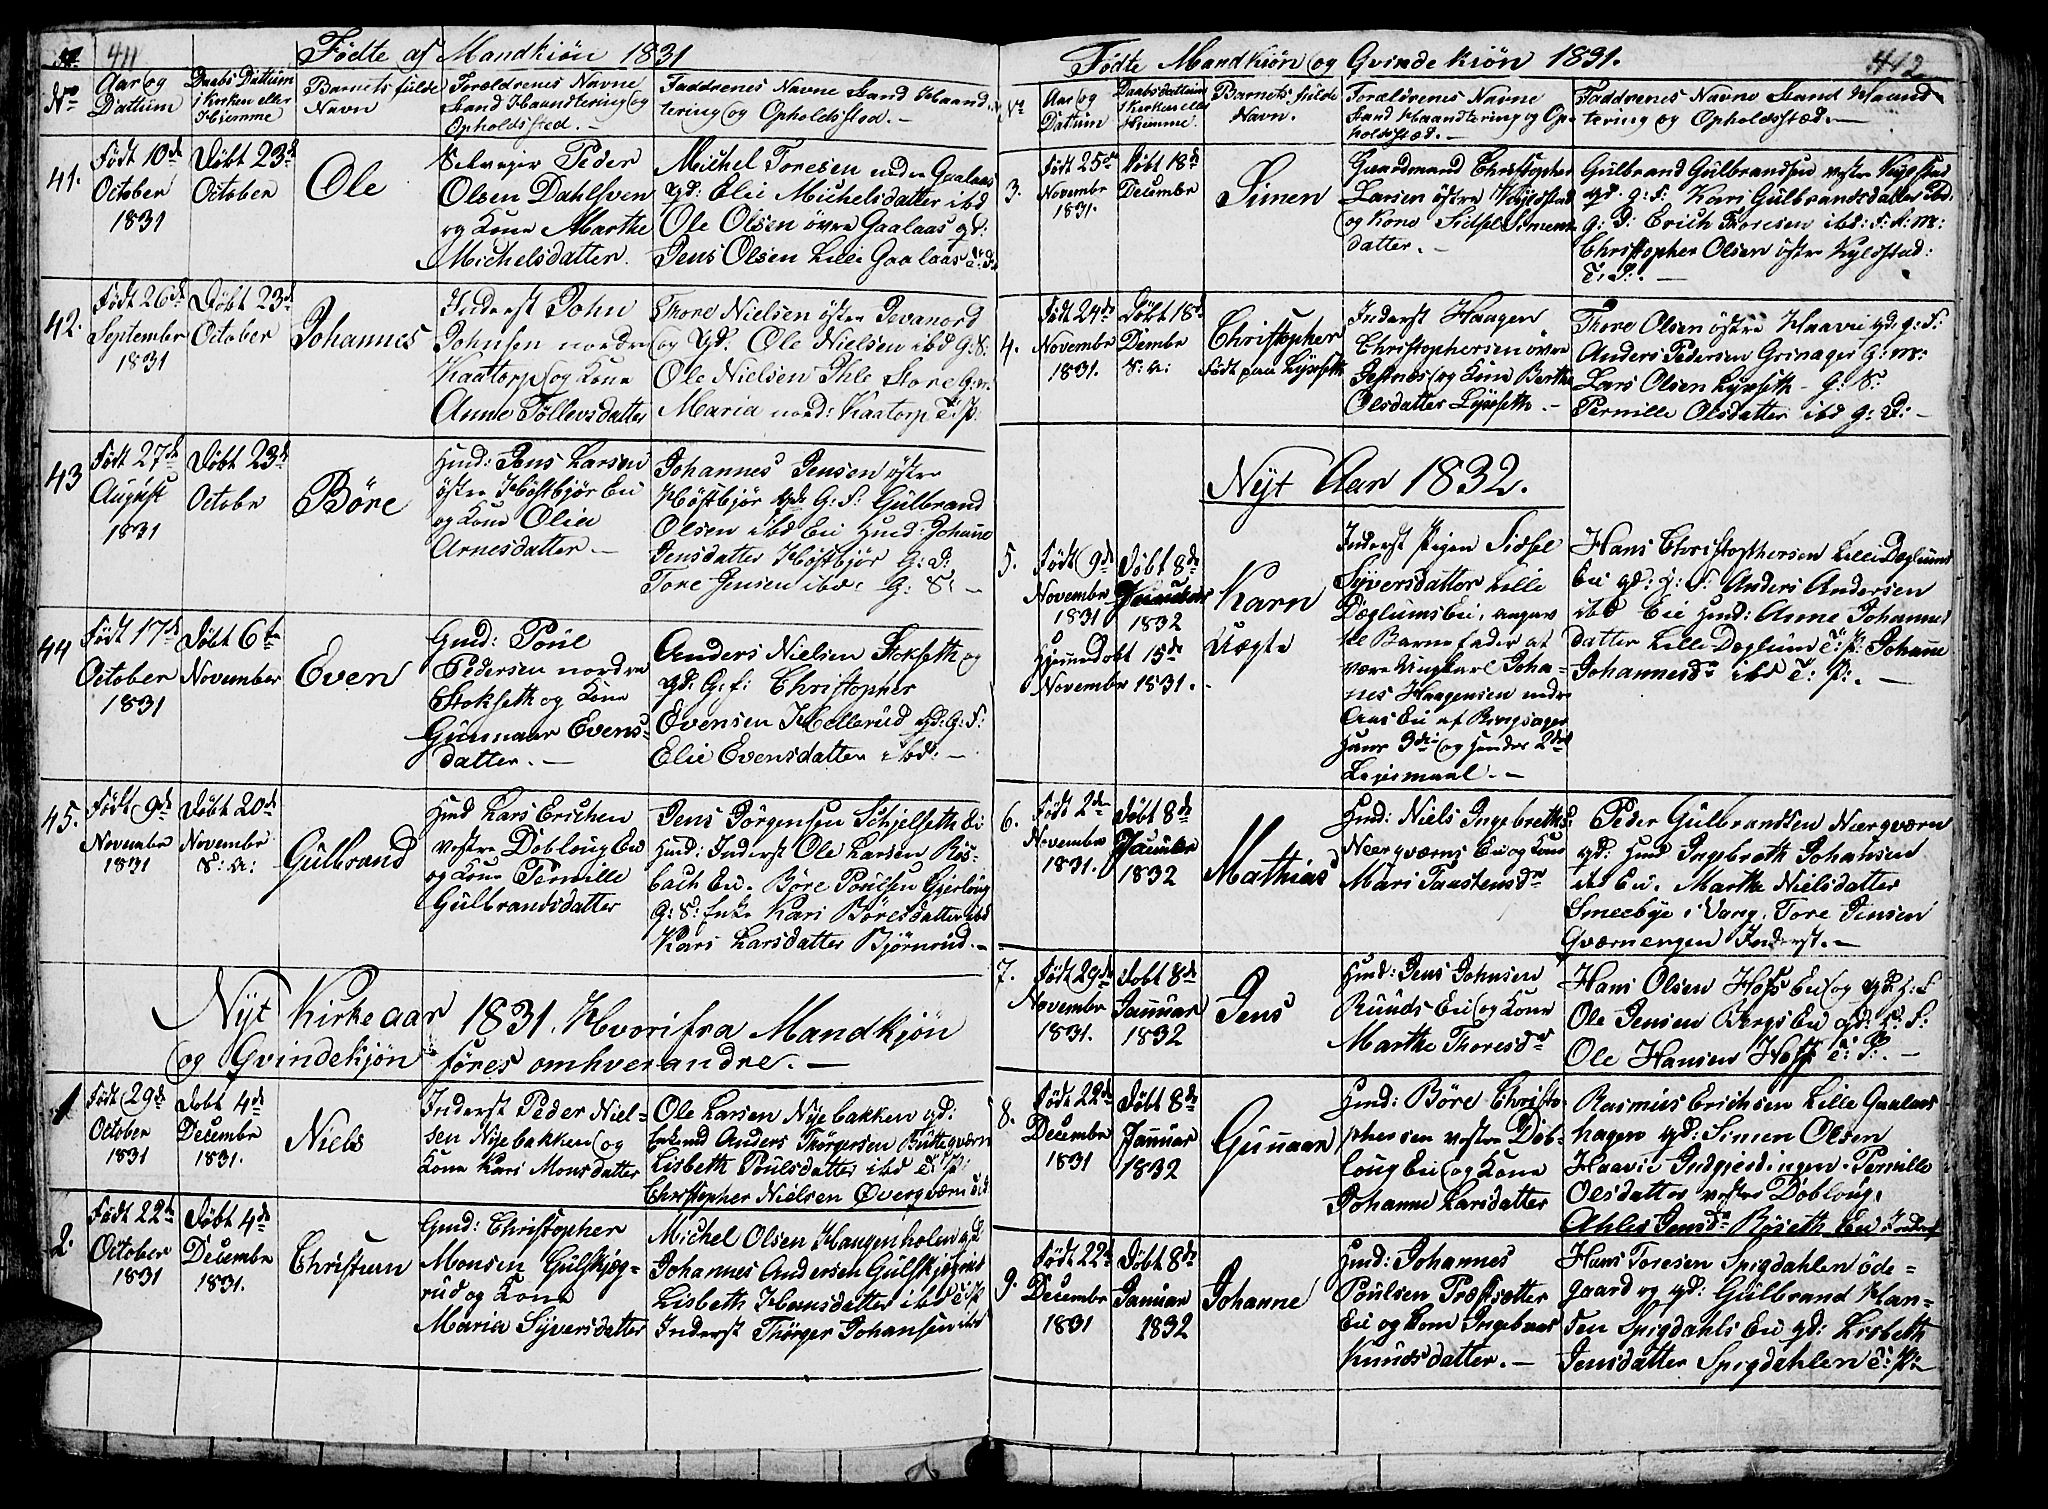 411
Fødte af Mandkiön 1831
No
Aar og Dattum
Daabs Dattum i Kirken eller Hiemme
Barnets fulde Navn
Forældrenes Navne Stand Haandtering og Opholdssted. -
Faddrenes Navne Stand Haandtering og Opholdssted. -
41.
Født 10de
October
1831
Döbt 23de
October
Ole
Selvejer Peder
Olsen Dahlsven
og Kone Marthe
Michelsdatter.
Michel Toresen nedre Gaalaas
gd: Elie Michelsdatter ibd
Ole Olsen övre Gaalaas gd:
Jens Olsen Lille Gaalaas
42.
Födt 26de
September
1831
Döbt 23de
October
Johannes
Inderst John
Johnsen nordre
Kaatorp og Kone
Anne Tollevsdatter
Thore Nielsen östre Jevanord
og gd. Ole Nielsen ibd G: S:
Ole Nielsen Ihle Store G: m:
Maria nord: Kaatorp T: P:
43
Födt 27de
August
1831
Döbt 23de
Octobr
Böre
Hmd: Jens Larsen
östre Höstbjör Eie
og Kone Olia
Arnesdatter -
Johannes Jensen östre
Höstbjör gd: G: F: Gulbrand
Olsen ibd Eie Hmd: Johanne
Jensdatter Höstbjör G: D:
Tore Jensen ibd: G: S: -
44
Födt 17de
October
1831
Döbt 6te
November
Even
Gmd: Poul
Pedersen nordre
Stokseth og Kone
Gunnaar Evens-
datter. -
Anders Nielsen Stokseth og
gd: G: f: Christopher
Evensen Hellerud gd: G: F:
Elie Evensdatter ibd: -
45.
Födt 9de
Novembr
1831
Döbt 20de
Novembr
S: a:
Gulbrand
Hmd Lars Erichsen
vestre Dobloug Eie
og Kone Pernille
Gulbrandsdatter
Jens Jörgensen Schjelseth Ei
Hmd: Inderst Ole Larsen Ros-
bach Eie. Böre Poulsen Gjerlöug
G: S: Enke Kari Böresdatter ibd
Kari Larsdatter Björnrud. -
Nyt Kirkeaar 1831. Hvorifra Mandkjön
og Qvindekjön föres omhverandre. -
1
Födt 29de
October
1831
Döbt 4de
Decembr
1831.
Niels
Inderst Peder Niel-
sen Nyebakken og
Kone Kari Monsdatter
Ole Larsen Nyebakken gd:
Enkemd Anders Thörgersen Butteqværn
Lisbeth Poulsdatter ibd T: P:
Christopher Nielsen Överqværn
2.
Födt 22de
October
1831
Döbt 4de
Decembr
1831.
Christian
Gmd: Christopher
Monsen Gulskjæg-
rud og Kone
Maria Syversdatter
Michel Olsen Haugenholm gd:
Johannes Andersen Gulskjegrud
Lisbeth Hansdatter ibd T: P:
Inderst Thörger Johansen ibd
412
Födte Mandkiön og Qvindekiön 1831.
No
Aar og Dattum
Daabsdattum i Kirken eller Hjemme.
Barnets fulde Navn.
Forældrenes Navne Stand Haandtering og Opholdssted. -
Faddrenes Navne Stand Haandtering og Opholdssted. -
3.
Födt 25de
Novembr
1831.
Döbt 18de
Decembr
Simen
Gaardmand Christopher
Larsen östre Kyldstad
og Kone Sidsel Simens
datter. -
Gulbrand Gulbrandsen vestre Kylstad
gd. g: F: Kari Gulbrandsdatter ibd.
g: D: Erich Thoresen ibd: F: f: m:
Christopher Olsen östre Kyldstad:
T: P: -
4.
Födt 24de
Novembr
1831.
Döbt 18de
Dembr
S: a:
Christopher
Födt paa Lyseth
Inderst Haagen
Christophersen övre
Jestnæs og Kone Berthe
Olsdatter Lyseth. -
Thore Olsen östre Haavie gd. g: F:
Anders Pedersen Grinager G: m:
Lars Olsen Lyseth - G: S:
Pernille Olsdatter ibd g: D: -
Nyt Aar 1832.
5.
Födt 9de
Novembr
1831
Hjemmedöbt 15de
Novembr 1831.
Döbt 8de
Januar
1832
Karn
Uægte
Inderst Pigen Sidsel
Syversdatter Lille
Dæglums Eie, angav
til Barnefader at
være Ungkarl Joha-
nes Haagensen nedre
Aas Eie af Ringsager
Hans 3die og Hendes 2det
Lejermaal. -
Hans Christophersen Lille Dæglums
Eie gd: g: F: Anders Andersen
ibd Eie Hmd: Anne Johannes
datter Lille Dæglum T: P: Johanne
Johannesdr ibd T: P: -
6.
Födt 2den
Novembr
1831.
Döbt 8de
Januar
1832
Mathias
Hmd: Niels Ingebreths:
Nærqværns Eie og Kone
Mari Taastensdr
Peder Gulbrandsen Nærqværn
gd: Hmd Ingebreth Johansen
ibd Eie. Marthe Nielsdatter
Smeebye i Vang. Tore Jensen
Qværnengen Inderst. -
7.
Födt 29de
Novembr
1831.
Döbt 8de
Januar
1832
Jens
Hmd: Jens Johnsen
Ruuds Eie og Kone
Marthe Thoresdr
Hans Olsen Hofs Eie og gd: g: F
Ole Jensen Bergs Eie gd: g: F:
Ole Hansen Hoff T: P: -
8.
Födt 22de
Decembr
1831
Döbt 8de
Januar
1832
Gunnaar
Hmd: Böre Christo-
phersen vestre Dob-
loug Eie og Kone
Johanne Larsdatter
Rasmus Erichsen Lille Gaalaas
hagen gd: Simen Olsen
Haavie Indgjerdingen. Pernille
Olsdatter vestre Dobloug.
Ahlis Jensdr Röseth Eie Inderst
9.
Födt 22de
Decembr
1831
Döbt 8de
Januar
1832
Johanne
Hmd: Johannes
Poulsen Præstsætter
Eie og Kone Ingeborg
Knudsdatter. -
Hans Toresen Spigdahlen öde-
gaard og gd: Gulbrand Han-
sen Spigdahls Eie gd: Lisbeth
Jensdatter Spigdahlen T: P: